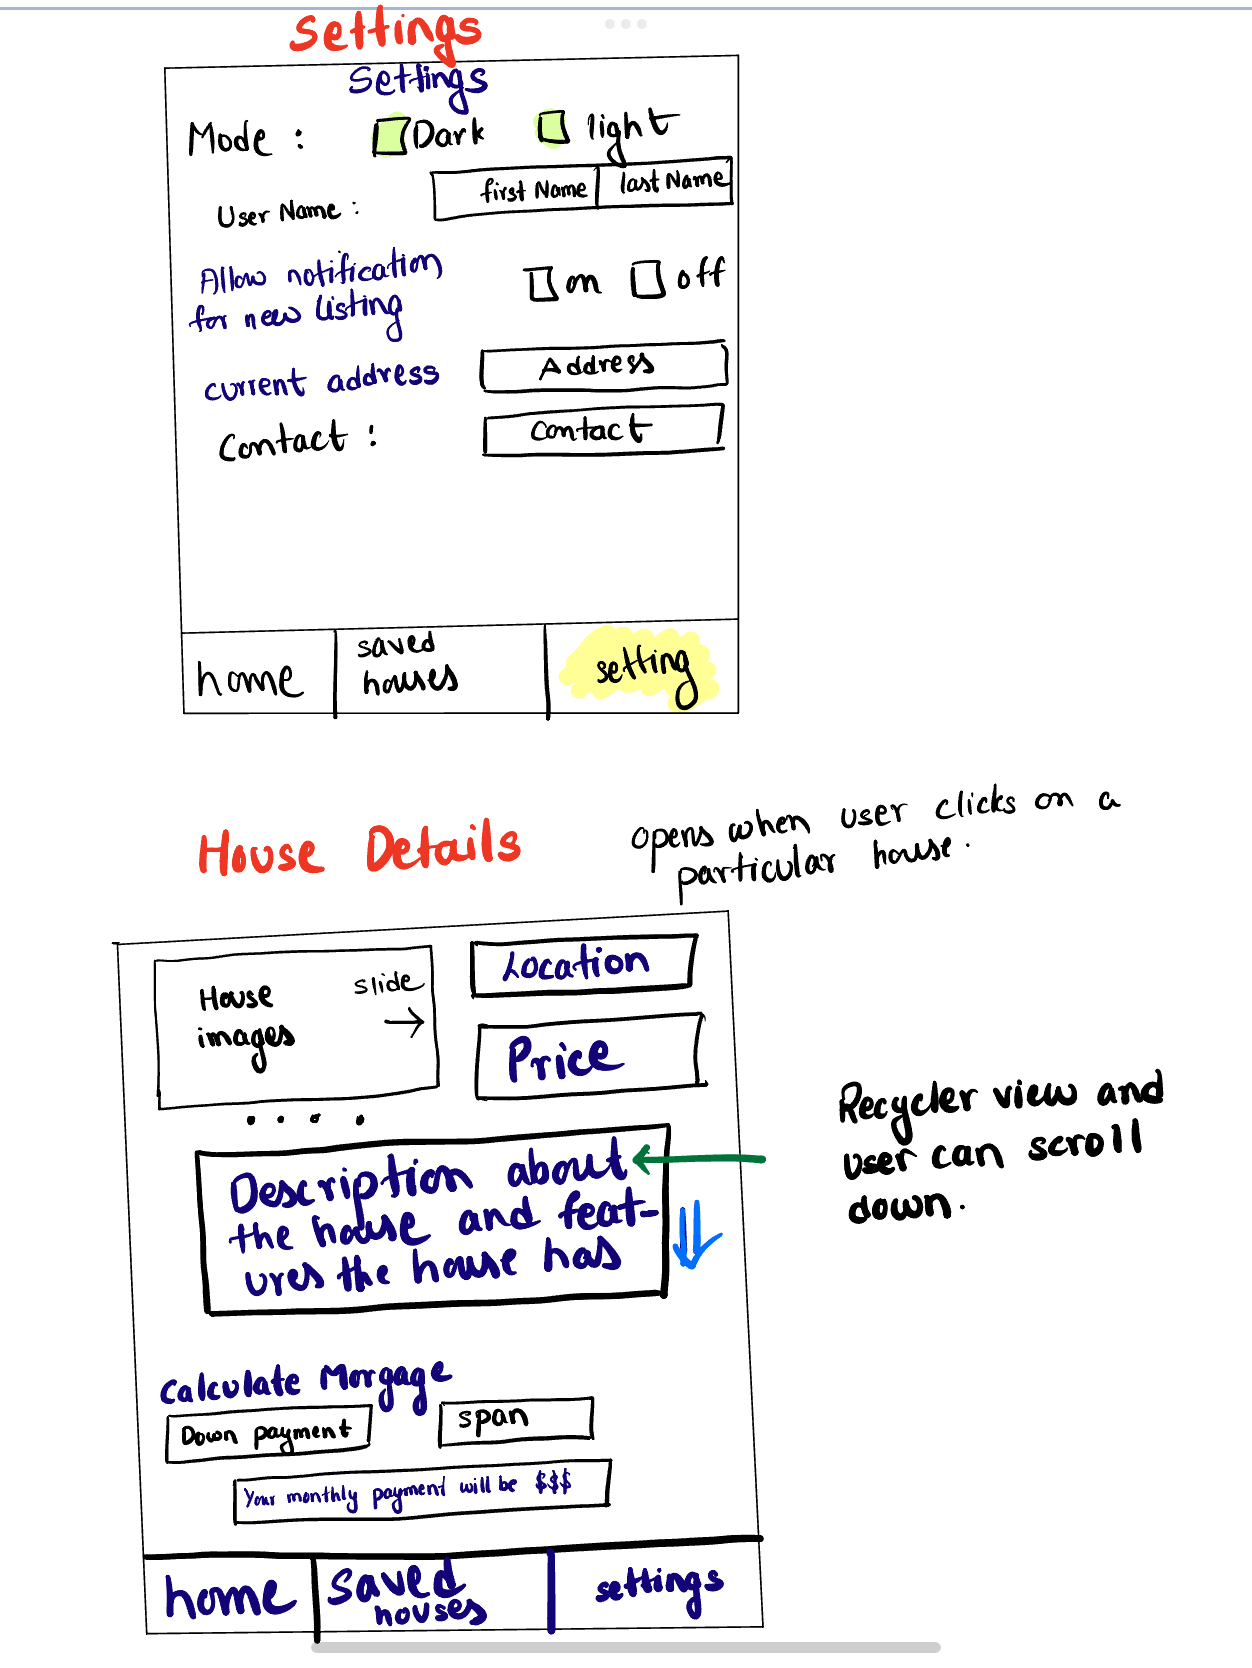 Settings
Settings
Mode : Dark light
User Name : first Name last Name
Allow notification
for new listing
on off
current address Address
Contact : Contact
home saved
houses
setting
House Details
opens when user clicks on a
particular house.
House
images
slide
Location
Price
Description about
the house and feat-
ures the house has
Recycler view and
user can scroll
down.
Calculate Morgage
Down payment span
Your monthly payment will be $$$
home saved
houses
settings